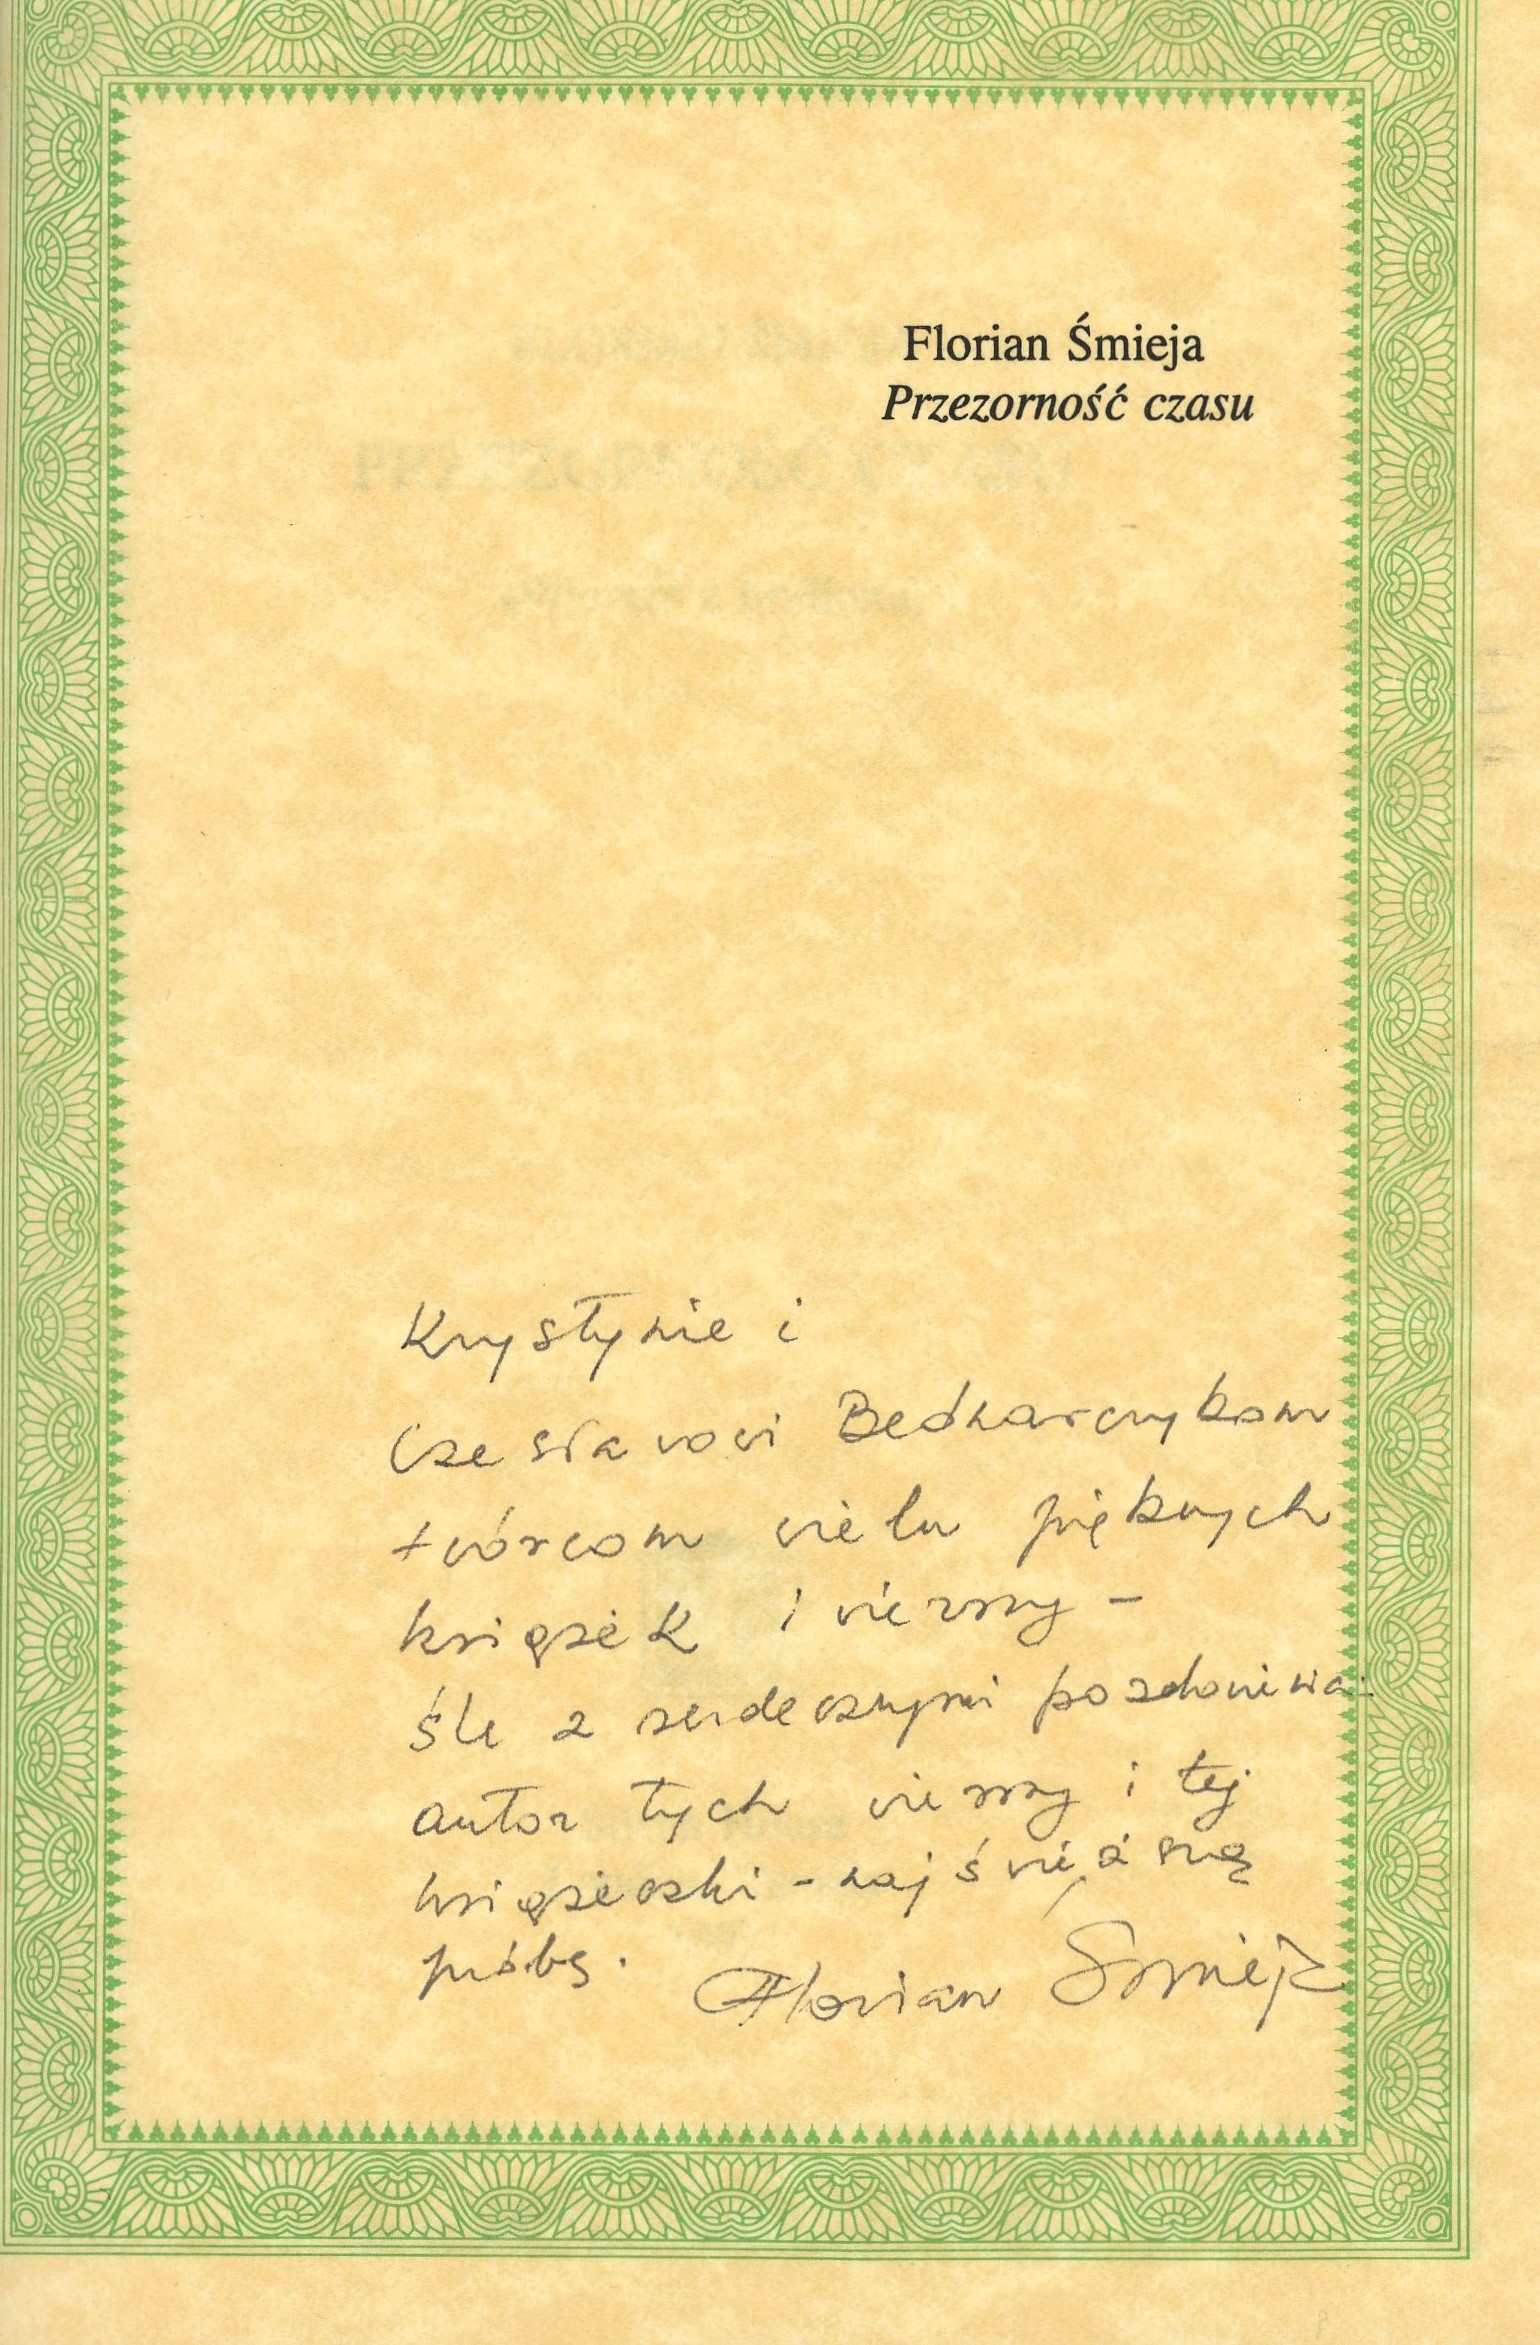 Florian Śmieja
Przezorność czasu
Krystynie i
Czesławowi Bednarczykom
twórcom wielu pięknych
książek i wierszy –
śle z serdecznymi pozdrowienia-
autor tych wierszy i tej
książeczki – najświeższą
próbę.
Florian Śmieja